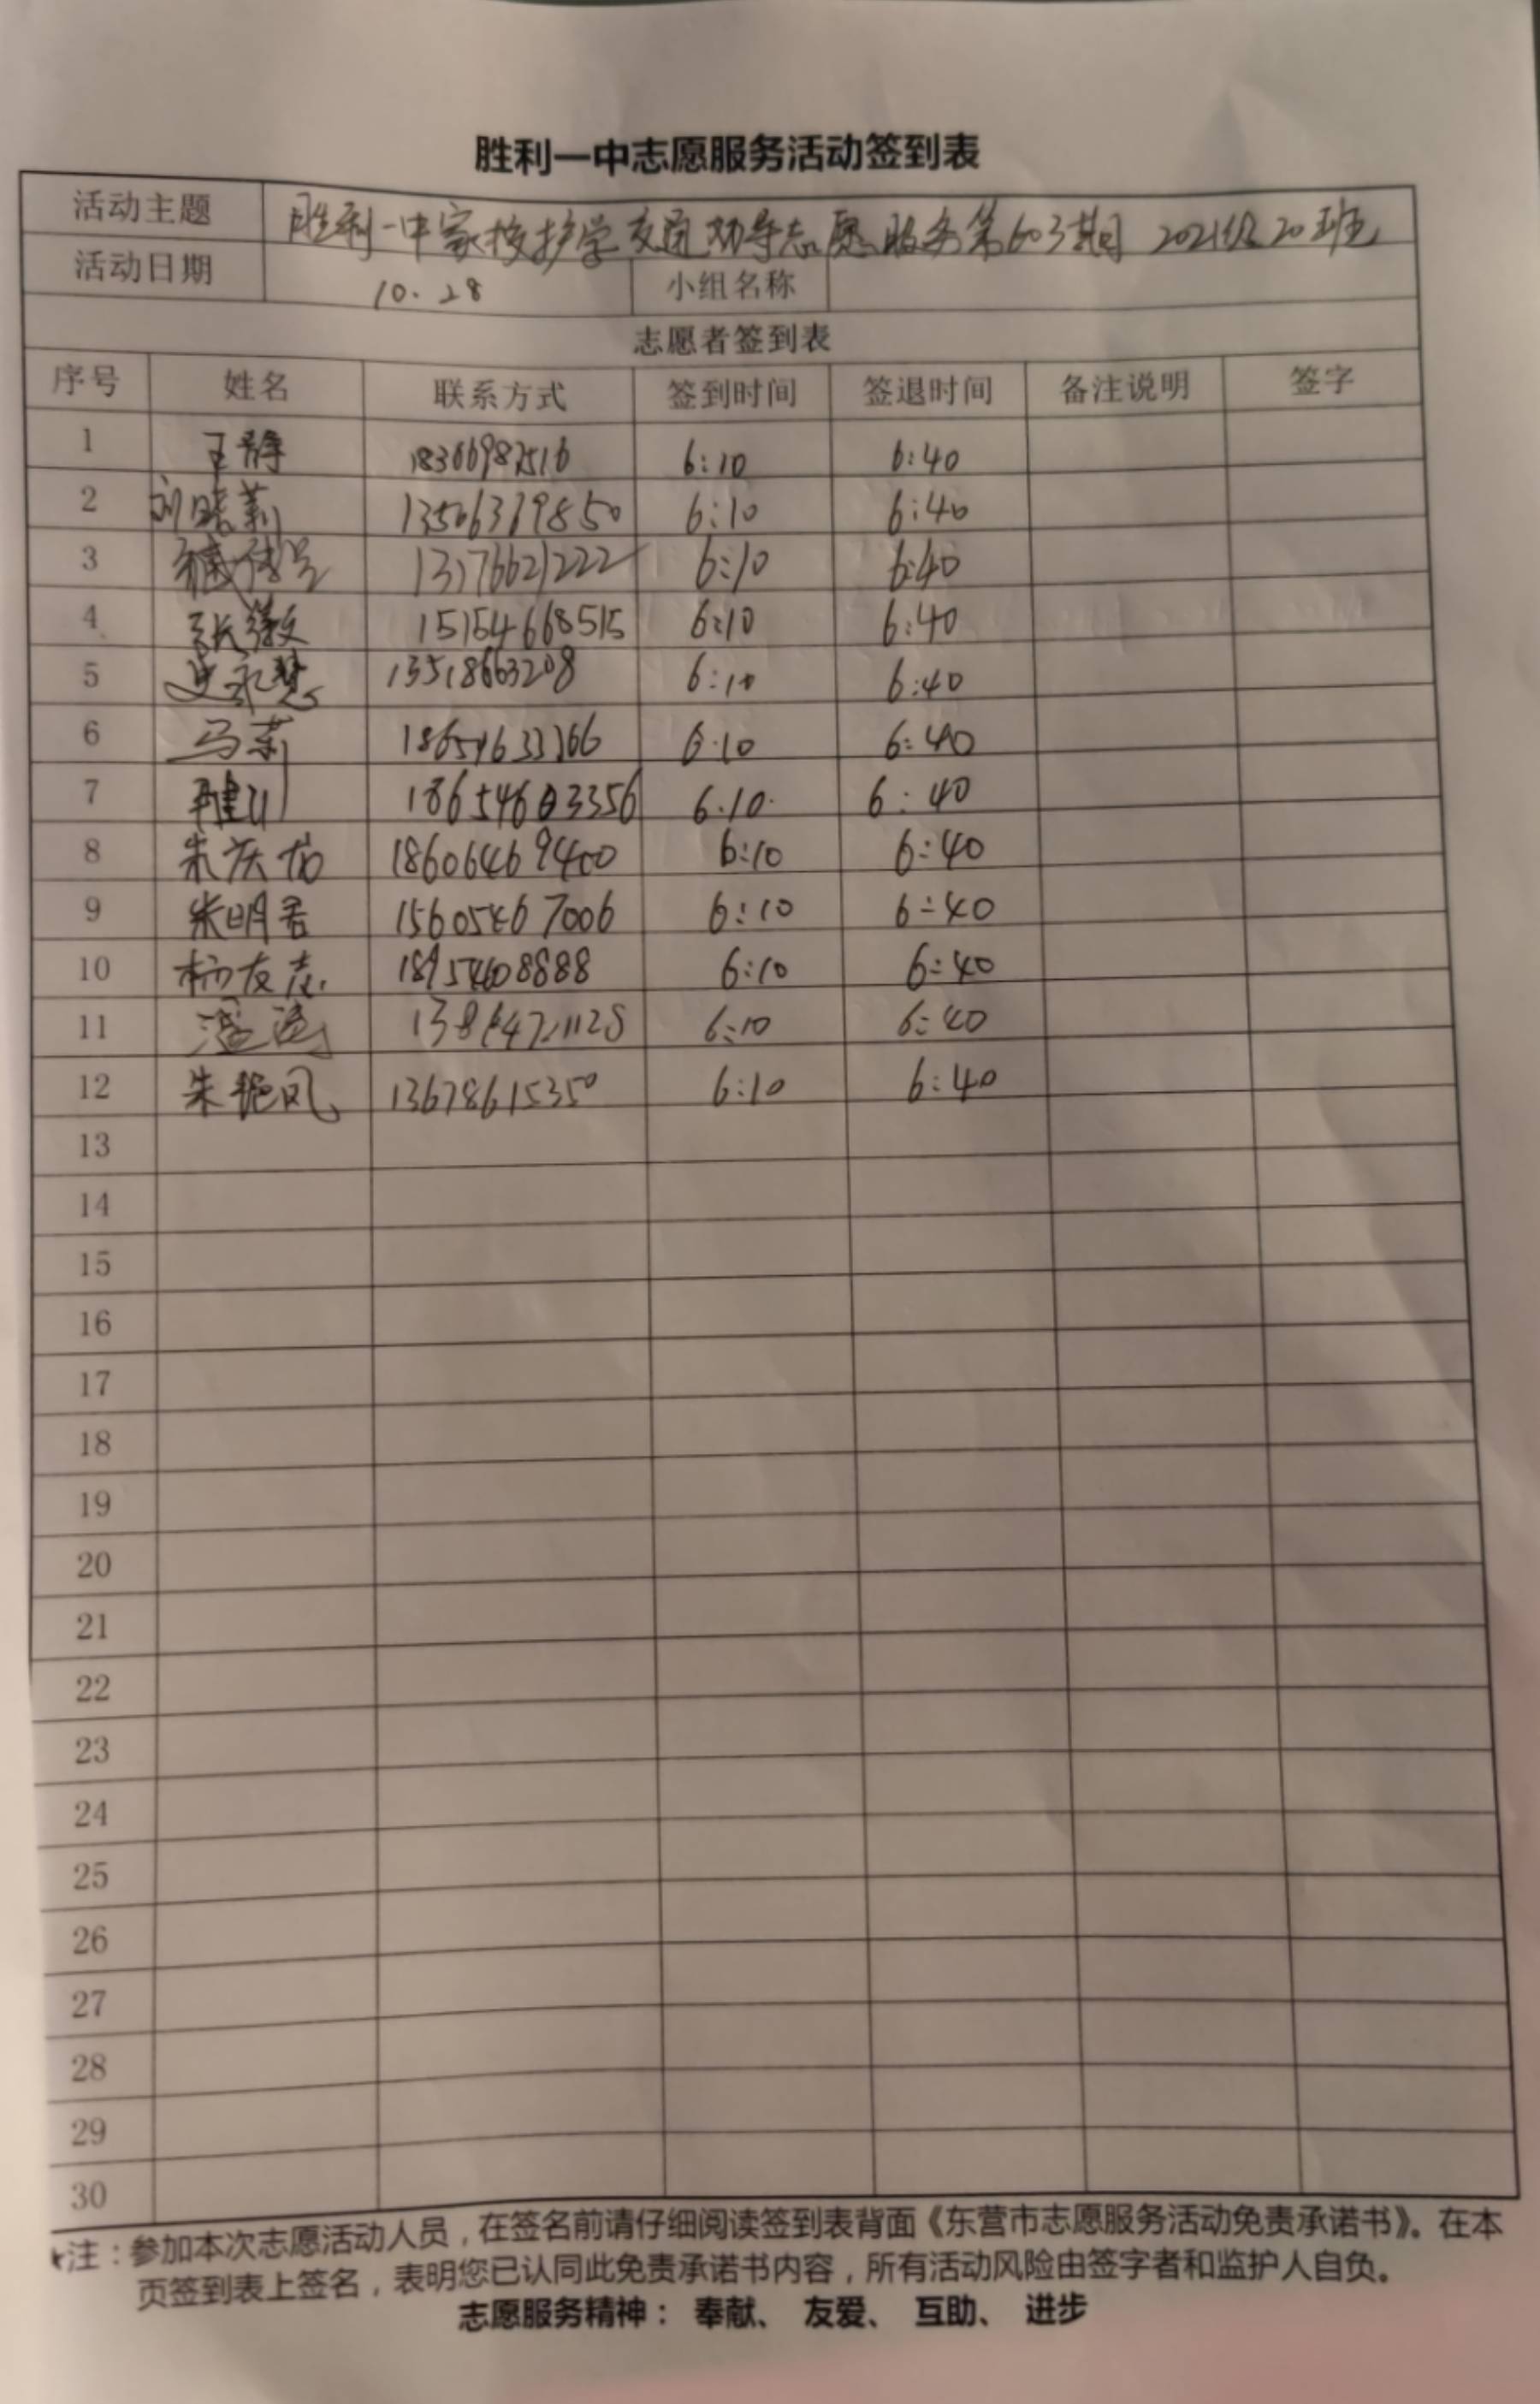 胜利一中志愿服务活动签到表
活动主题 胜利一中家校护学交通劝导志愿服务第603期 2021级20班
活动日期 10.28 小组名称
志愿者签到表
序号 姓名 联系方式 签到时间 签退时间 备注说明 签字
1 王静 18366982516 6:10 6:40
2 刘晓莉 13506379850 6:10 6:40
3 13176621222 6:10 6:40
4 张徽 15154668515 6:10 6:40
5 史永慧 13518663208 6:10 6:40
6 马莉 6:10 6:40
7 6.10. 6:40
8 朱庆 18606469400 6:10 6:40
9 朱明君 15605467006 6:10 6:40
10 杨友志 18954608888 6:10 6:40
11 6:10 6:40
12 朱艳凤 13678615350 6:10 6:40
13
14
15
16
17
18
19
20
21
22
23
24
25
26
27
28
29
30
注：参加本次志愿活动人员，在签名前请仔细阅读签到表背面《东营市志愿服务活动免责承诺书》。在本
页签到表上签名，表明您已认同此免责承诺书内容，所有活动风险由签字者和监护人自负。
志愿服务精神： 奉献、 友爱、 互助、 进步